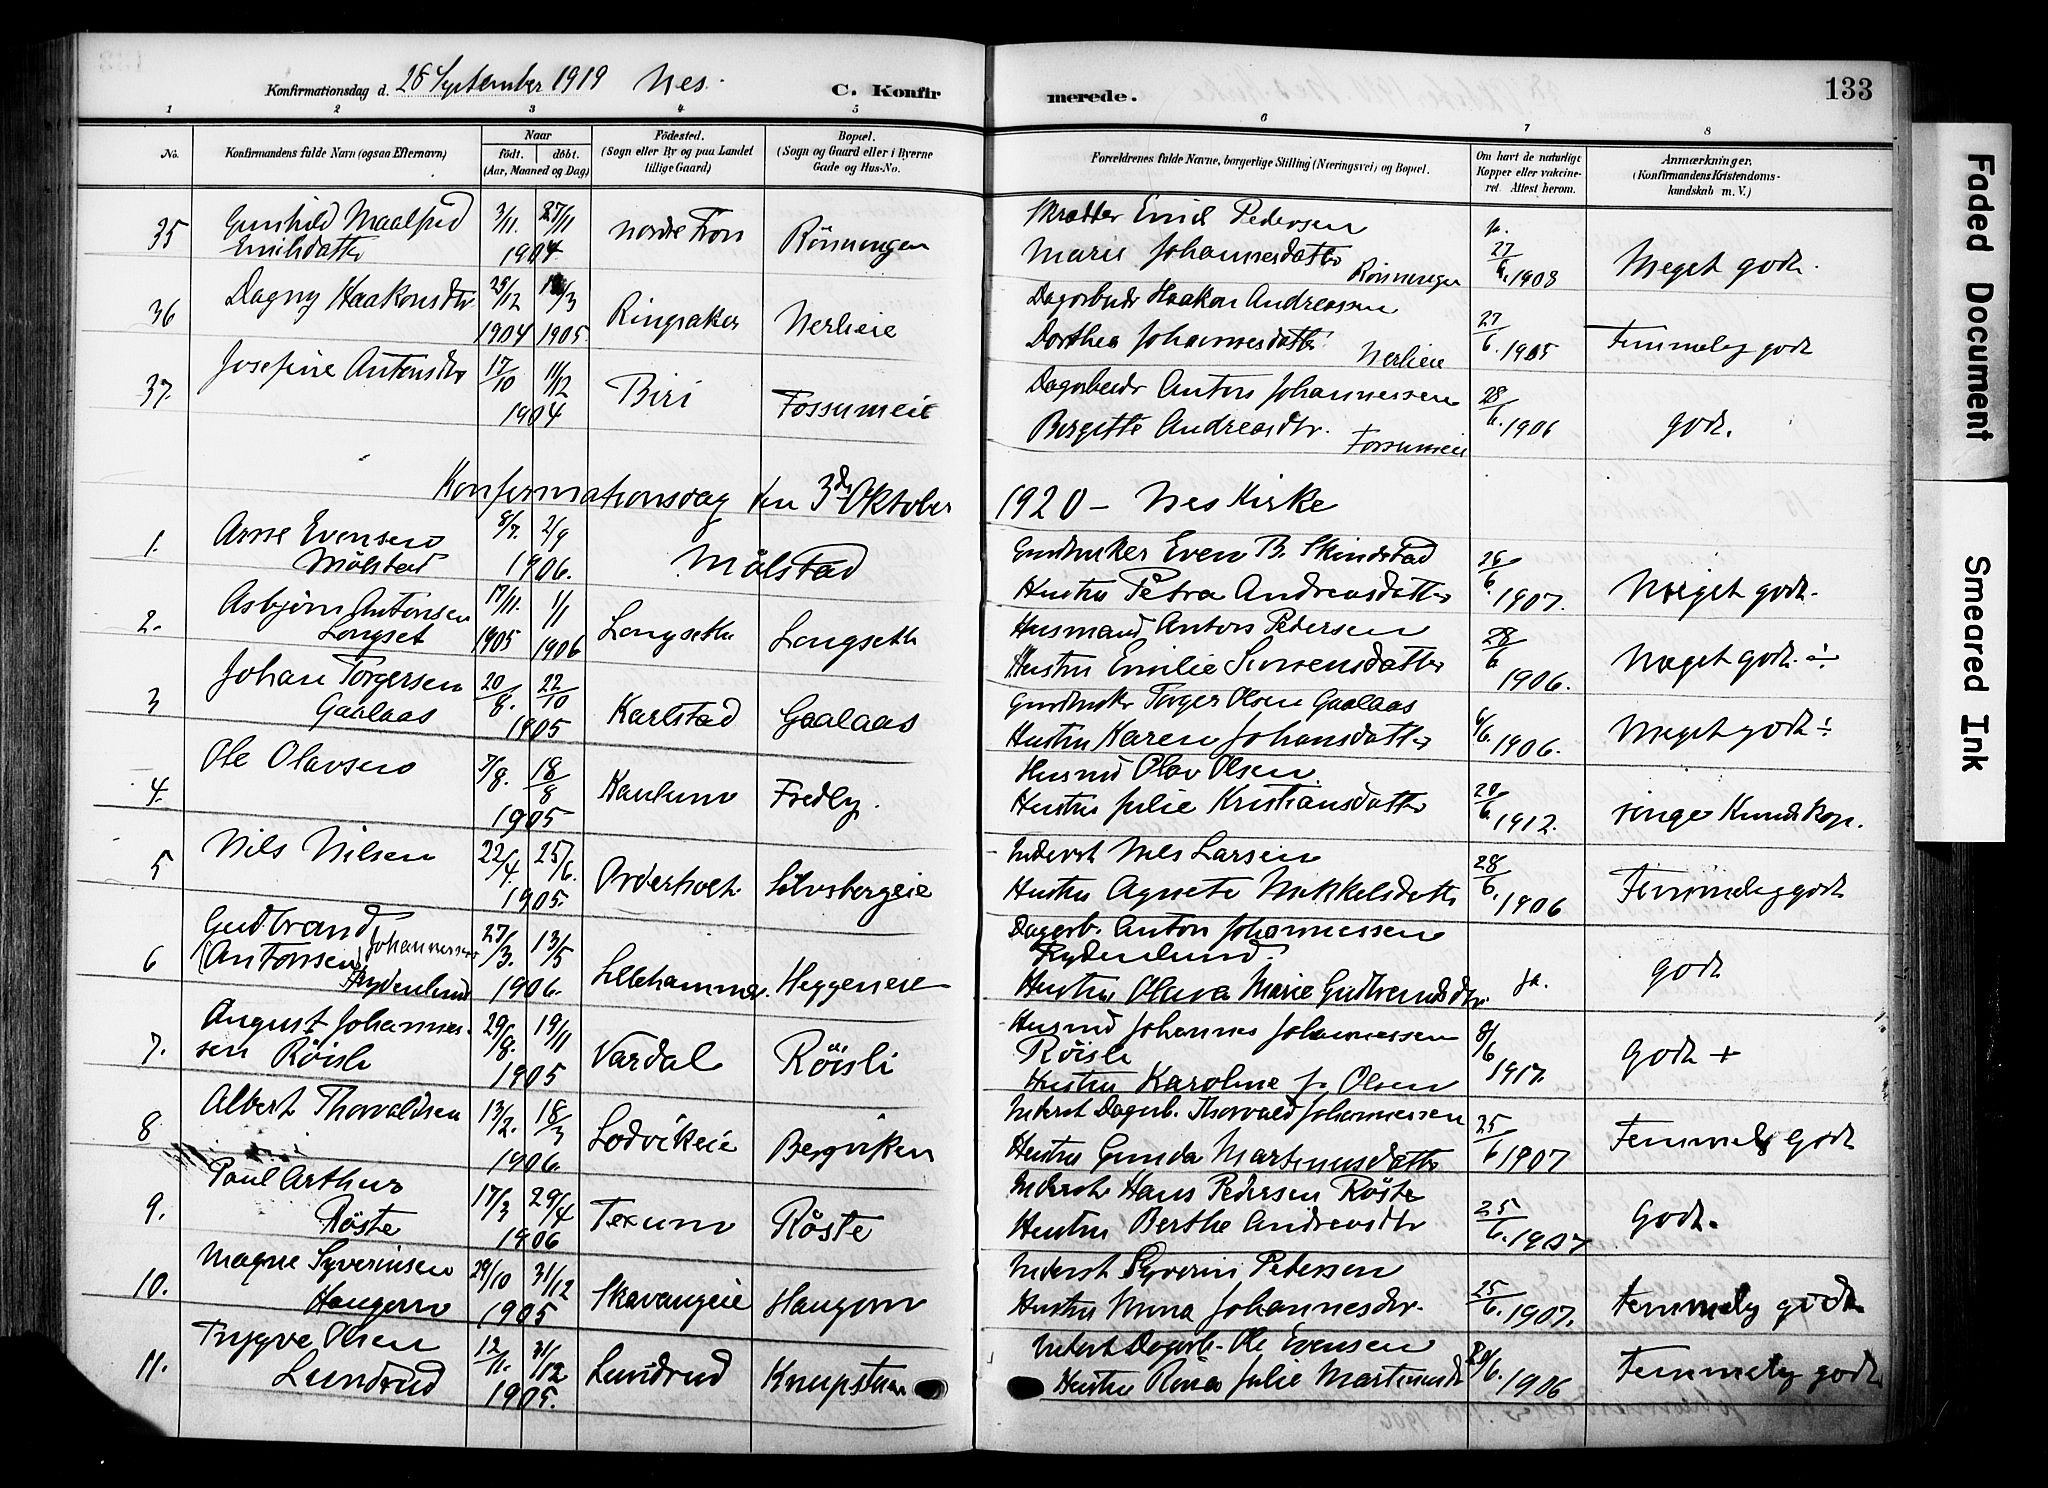 Konfirmationsdag d. 28 September 1919 Nes. C. Konfirmerede. 133
1 2 3 4 5 6 7 8
No. Konfirmandens fulde Navn (ogsaa Efternavn) Naar født. døbt. (Aar, Maaned og Dag) Fødested. (Sogn eller By og paa Landet tillige Gaard) Bopæl. (Sogn og Gaard eller i Byerne Gade og Hus-No. Forældrenes fulde Navne, borgerlige Stilling (Næringsvei) og Bopæl. Om havt de naturlige Kopper eller vaccineret. Attest herom. Anmærkninger. (Konfirmandens Kristendomskundskab m. V.)
35 Gunhild Maalfrid 3/11 27/11 Nordre Fron Rönningen Emil Pedersen
Emilsdatter 1904 Marie Johannesdatter Rönningen 27/6 1908 Meget godt.
36 Dagny Haakonsdtr 29/12 /3 Ringsaker Nerlieie Dagarbeidr Haakon Andreassen
1904 1905. Dorthea Johannesdatter Nerlieie 27/6. 1905 Temmelig godt
37. Josefine Antonsdtr 17/10 11/12 Biri Fossumeie Dagarbeidr Anton Johannessen
1904 Bergitte Andreasdtr. Fossumeie 28/6. 1906 godt.
Konfirmationsdag den 3die Oktober 1920 - Nes Kirke
1. Arne Evensen 8/7. 2/9 Mölstad Gaardbruker Even B. Skindstad
Mölstad 1906. Hustru Petra Andreasdatter 26/6 1907. Meget godt.
2. Asbjörn Antonsen 17/11. 1/1 Longseth Longseth Husmand Anton Pedersen
Longset 1905 1906 Hustru Emilie Simensdatter 28/6 1906. Meget godt. ÷
3 Johan Torgersen 20/8. 22/10 Karlstad Gaalaas Gaardbruker Torger Olsen Gaalaas
Gaalaas 1905 Hustru Karen Johansdatter 6/6. 1906. Meget godt ÷
4. Ole Olavsen 7/8. 18/8 Kaulum Fredly. Husmd Olav Olsen.
1905 Hustru Julie Kristiansdatter 20/6. 1912. ringe Kundskap.
5 Nils Nilsen 22/4 25/6. Sölvsbergeie Inderst Nils Larsen
1905. Hustru Agnete Mikkelsdatter 28/6. 1906 Temmelig godt
6 Gudbrand 27/3. 13/5 Lillehammer. Heggeneie Dagarb. Anton Johannessen
(Antonsen) Johannessen Rydenlund.
Rydenlund 1906. Hustru Olava Marie Gudbrandsdtr. ja. godt
7. August Johannes- 29/8. 19/11 Vardal Röisli Husmd Johannes Johannessen
sen Röisli Röisli 8/6 1917. Godt +
1905 Hustru Karoline f. Olsen
8. Albert Thorvaldsen 13/2. 18/3 Lodvikeie Bergviken Inderst Dagarb. Thorvald Johannessen
1906. Hustru Gunda Martinusdatter 25/6 1907 Temmelig Godt
9. Paul Arthur 17/3 29/4 Texum Röste Inderst Hans Pedersen Röste
Röste 1906 Hustru Berthe Andreasdtr 25/6. 1907 Godt.
10. Magne Syverinsen 29/10 31/12 Skavangeie Haugom Inderst Syverin Petersen
Haugom 1905 Hustru Mina Johannesdtr. 25/6. 1907. Temmelig godt.
11. Trygve Olsen 12/11. 31/12 Lundrud Inderst Dagarb. Ole Evensen
Lundrud 1905. Hustru Rina Julie Martinusdtr 29/6. 1906 Temmelig godt
Faded Document
Smeared Ink